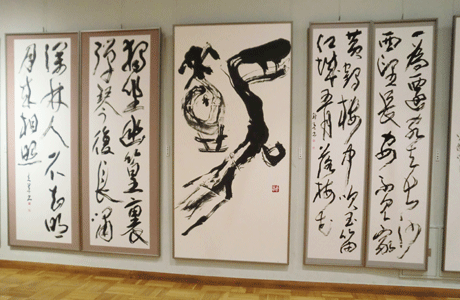 一為遷客去長沙
西望長安不見家
黃鶴樓中吹玉笛
江城五月落梅花
獨坐幽篁裏
彈琴復長嘯
深林人不知明
月來相照